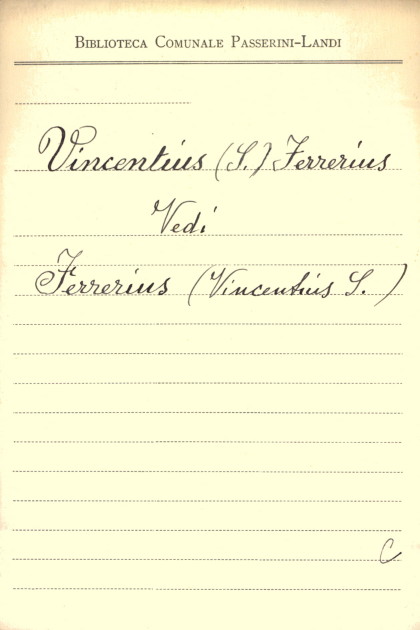 Biblioteca Comunale Passerini-Landi
Vincentius (S.) Ferrerius
Vedi
Ferrerius (Vincentius S.)
C